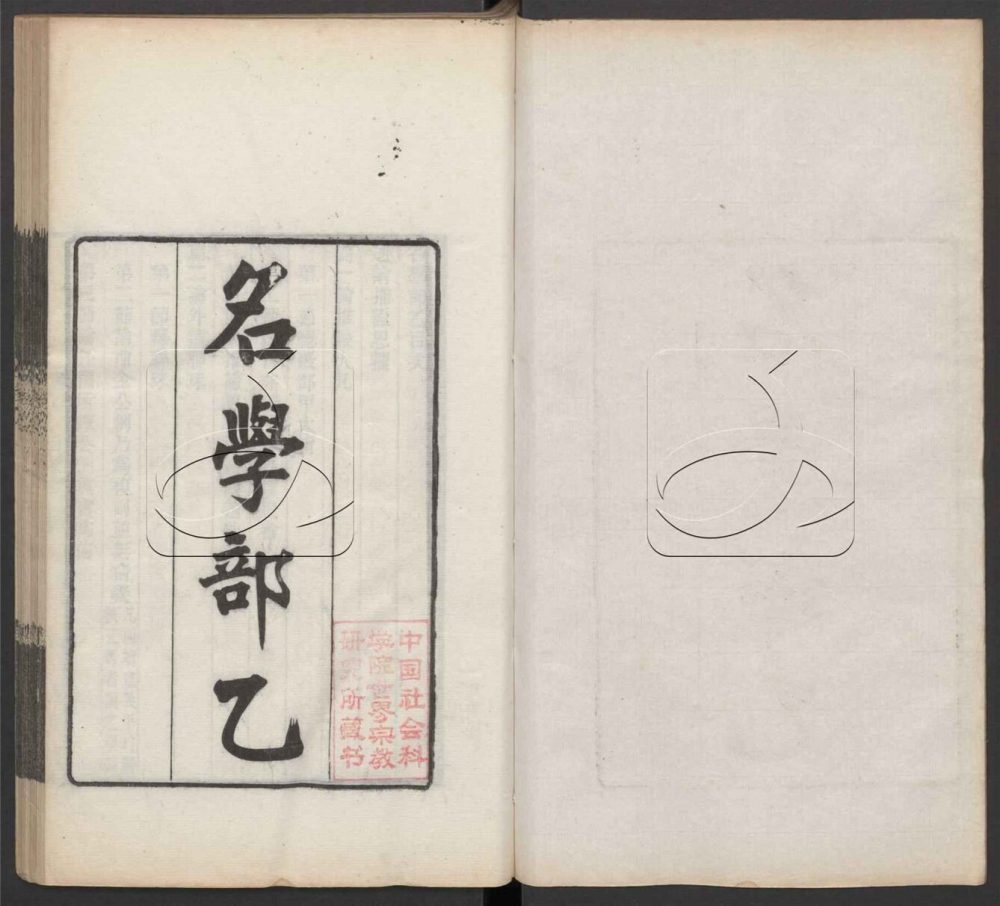 名學部乙
中国社会科
学院世界宗教
研究所藏书